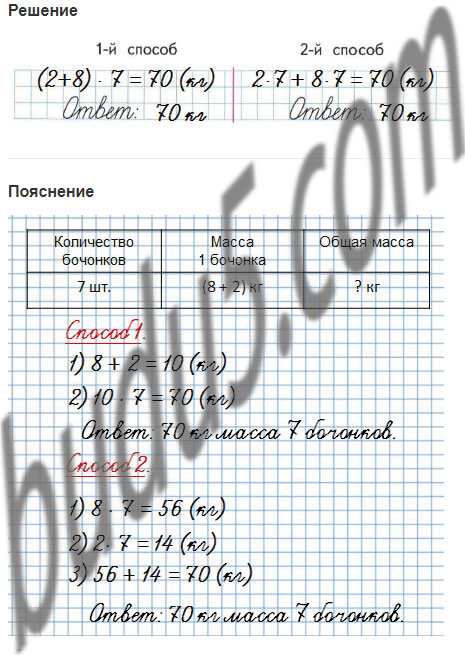 Решение
1-й способ 2-й способ
(2+8) · 7 = 70 (кг) 2·7 + 8·7 = 70 (кг)
Ответ: 70 кг Ответ: 70 кг
Пояснение
Количество бочонков Масса 1 бочонка Общая масса
7 шт. (8 + 2) кг ? кг
Способ 1.
1) 8 + 2 = 10 (кг)
2) 10 · 7 = 70 (кг)
Ответ: 70 кг масса 7 бочонков.
Способ 2.
1) 8 · 7 = 56 (кг)
2) 2 · 7 = 14 (кг)
3) 56 + 14 = 70 (кг)
Ответ: 70 кг масса 7 бочонков.
budu5.com